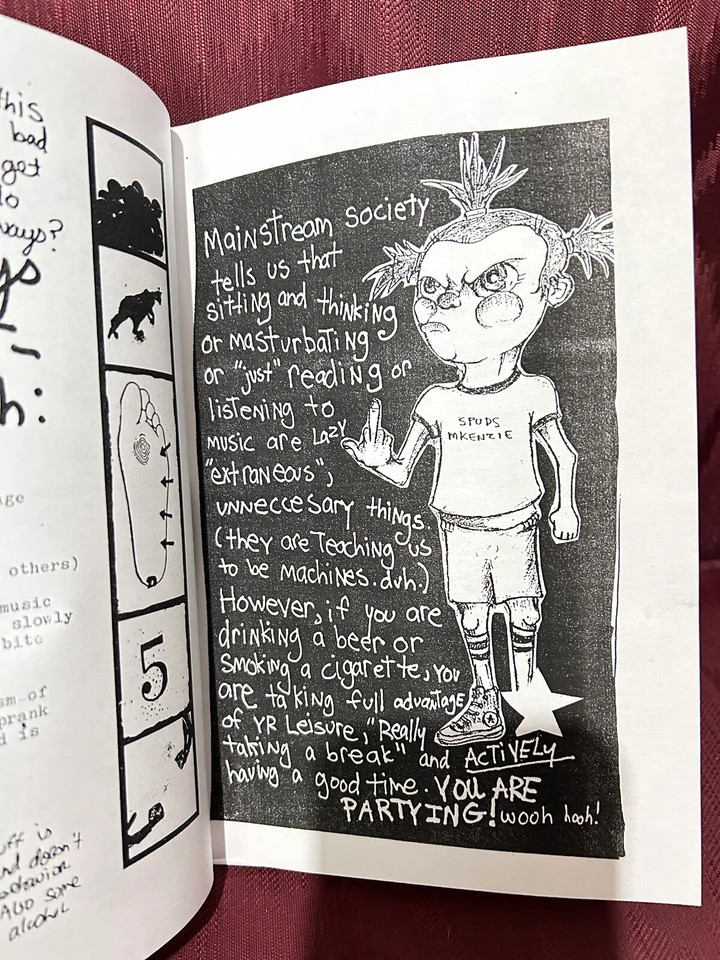 this
bad
get
ways?
h:
age
others)
music
slowly
bite
sm of
prank
d is
and doesn't
Also some
alcohol
5
Mainstream society
tells us that
sitting and thinking
or masturbating
or "just" reading or
listening to
music are Lazy
"extraneous",
unneccesary things.
(they are Teaching us
to be machines. duh.)
However, if you are
drinking a beer or
smoking a cigarette, you
are taking full advantage
of YR Leisure, "Really
taking a break" and ACTIVELY
having a good time. YOU ARE
PARTYING! wooh hooh!
SPUDS
MKENZIE